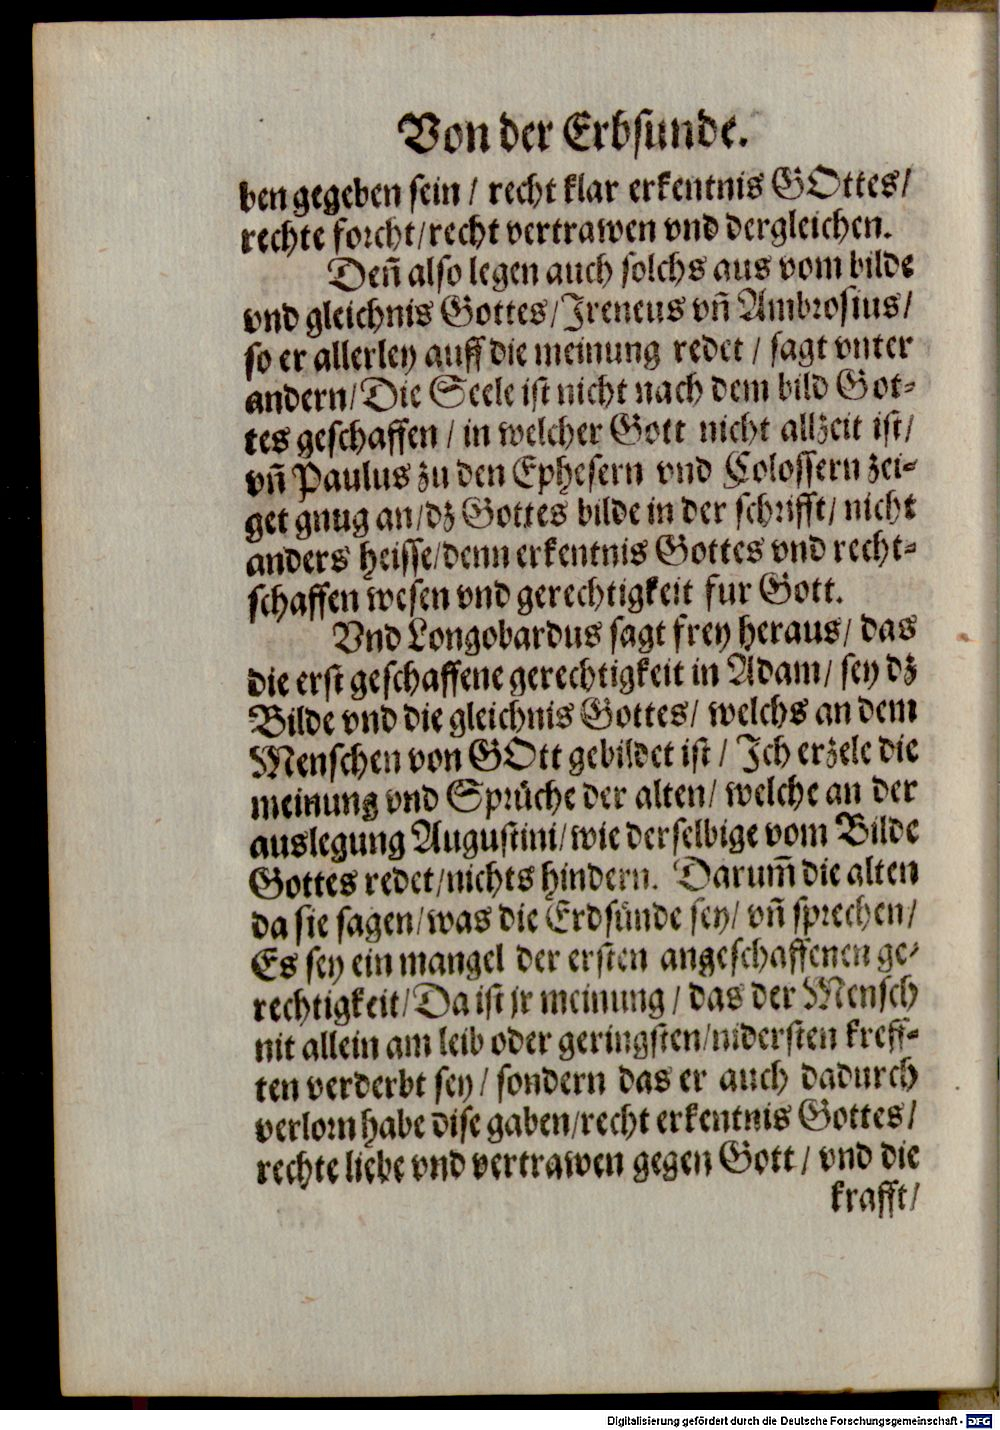 Von der Erbsunde.
ben gegeben sein / recht klar erkentnis GOttes /
rechte forcht / recht vertrawen vnd dergleichen.
Deñ also legen auch solchs aus vom bilde
vnd gleichnis Gottes / Ireneus vñ Ambrosius /
so er allerley auff die meinung redet / sagt vnter
andern / Die Seele ist nicht nach dem bild Got-
tes geschaffen / in welcher Gott nicht allzeit ist /
vñ Paulus zu den Ephesern vnd Colossern zei-
get gnug an / dz Gottes bilde in der schrifft / nicht
anders heisse / denn erkentnis Gottes vnd recht-
schaffen wesen vnd gerechtigkeit fur Gott.
Vnd Longobardus sagt frey heraus / das
die erst geschaffene gerechtigkeit in Adam / sey dz
Bilde vnd die gleichnis Gottes / welchs an dem
Menschen von GOtt gebildet ist / Ich erzele die
meinung vnd Sprüche der alten / welche an der
auslegung Augustini / wie derselbige vom Bilde
Gottes redet / nichts hindern. Darum̃ die alten
da sie sagen / was die Erdsünde sey / vñ sprechen /
Es sey ein mangel der ersten angeschaffenen ge-
rechtigkeit / Da ist jr meinung / das der Mensch
nit allein am leib oder geringsten / nidersten kreff-
ten verderbt sey / sondern das er auch dadurch
verlorn habe dise gaben / recht erkentnis Gottes /
rechte liebe vnd vertrawen gegen Gott / vnd die
krafft /
Digitalisierung gefördert durch die Deutsche Forschungsgemeinschaft - DFG